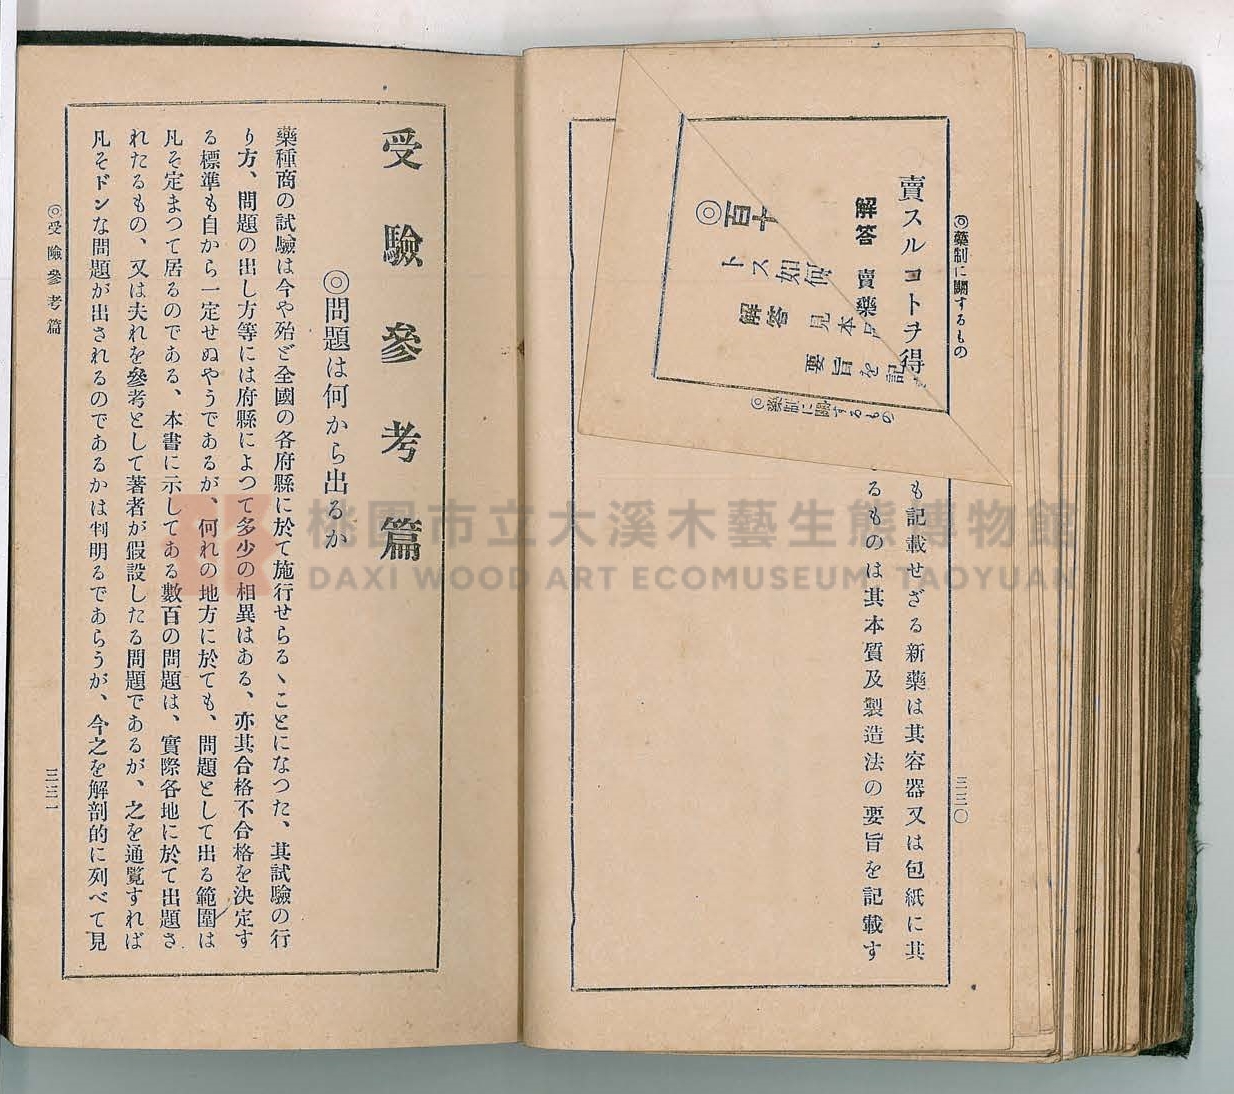 ◎藥制に關するもの
三三〇
賣スルコトヲ得
も記載せざる新藥は其容器又は包紙に其
解答 賣藥
るものは其本質及製造法の要旨を記載す
◎百十
トス如何
解答 見本品
要旨を記
◎藥制に關するもの
受驗參考篇
◎問題は何から出るか
藥種商の試驗は今や殆ど全國の各府縣に於て施行せらるヽことになつた、其試驗の行
り方、問題の出し方等には府縣によつて多少の相異はある、亦其合格不合格を決定す
る標準も自から一定せぬやうであるが、何れの地方に於ても、問題として出る範圍は
凡そ定まつて居るのである、本書に示してある數百の問題は、實際各地に於て出題さ
れたるもの、又は夫れを參考として著者が假設したる問題であるが、之を通覽すれば
凡そドンな問題が出されるのであるかは判明るであらうが、今之を解剖的に列べて見
◎受驗參考篇
三三一
桃園市立大溪木藝生態博物館
DAXI WOOD ART ECOMUSEUM, TAOYUAN